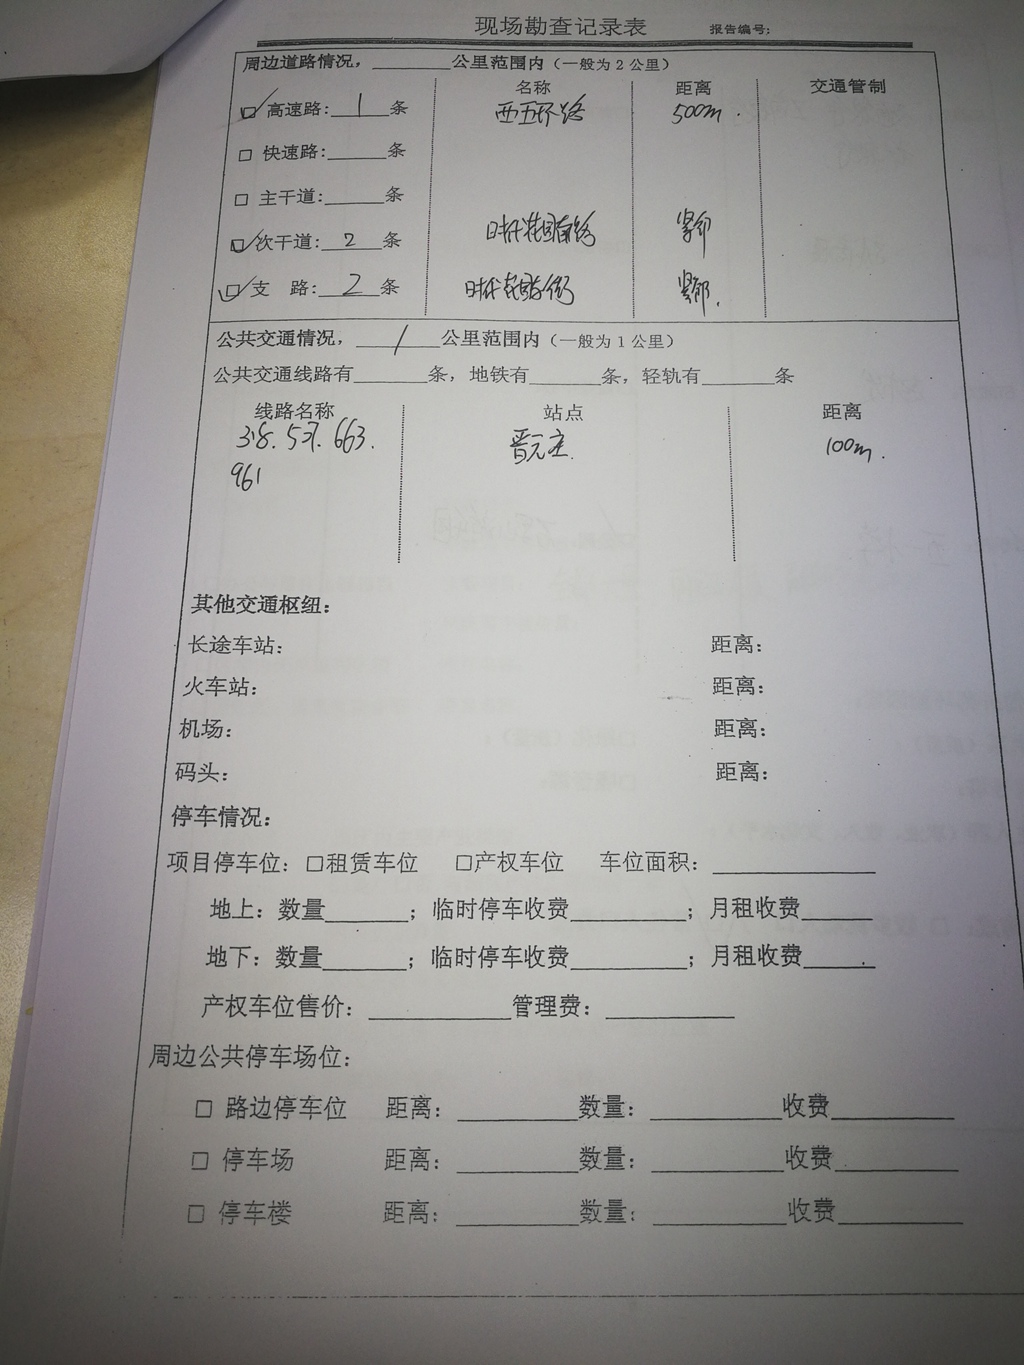 现场勘查记录表 报告编号:
周边道路情况，________公里范围内（一般为2公里）
名称 距离 交通管制
☑ 高速路: 1 条 西五环路 500m.
□ 快速路:______条
□ 主干道:______条
☑ 次干道: 2 条 时代花园南路 紧邻
☑ 支 路: 2 条 时代花园街 紧邻.
公共交通情况，___/___公里范围内（一般为1公里）
公共交通线路有______条，地铁有______条，轻轨有______条
线路名称 站点 距离
318. 527. 663. 晋元庄. 100m.
961
其他交通枢纽：
长途车站： 距离：
火车站： 距离：
机场： 距离：
码头： 距离：
停车情况：
项目停车位：□租赁车位 □产权车位 车位面积：____________
地上：数量______；临时停车收费________；月租收费_____
地下：数量______；临时停车收费________；月租收费_____
产权车位售价：__________管理费：_________
周边公共停车场位：
□ 路边停车位 距离：________数量：_________收费________
□ 停车场 距离：________数量：_________收费________
□ 停车楼 距离：________数量：_________收费________